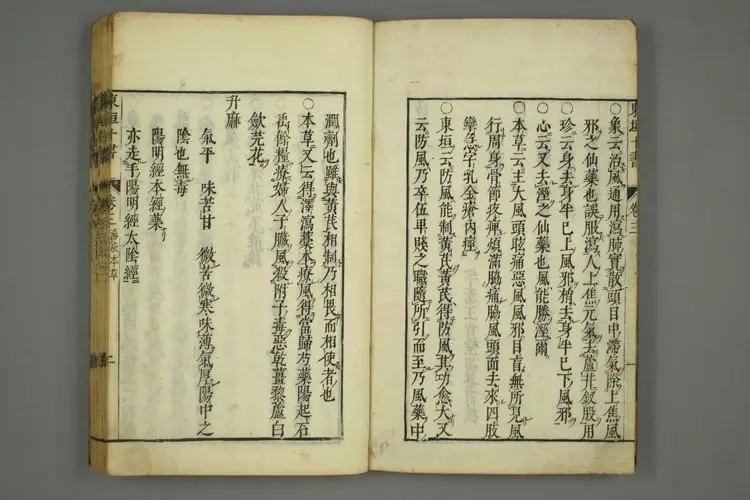 ○象云治風通用瀉肺實散頭目中滯氣除上焦風
邪之仙藥也誤服瀉人上焦元氣去蘆并釵股用
珍云身去身半已上風邪梢去身半已下風邪
心云又去溼之仙藥也風能勝溼爾
○本草云主大風頭眩痛惡風風邪目盲無所見風
行周身骨節疼痺煩滿脇痛脇風頭面去來四肢
攣急字乳金瘡內痙
○東垣云防風能制黃芪黃芪得防風其功愈大又
云防風乃卒伍卑賤之職隨所引而至乃風藥中
潤劑也雖與黃芪相制乃相畏而相使者也
○本草又云得澤瀉藁本療風得當歸芍藥陽起石
禹餘糧療婦人子臟風殺附子毒惡乾薑藜蘆白
歛芫花
升麻
氣平 味苦甘 微苦微寒味薄氣厚陽中之
陰也無毒
陽明經本經藥
亦走手陽明經太陰經
東垣十書 卷之三 湯液本草 二